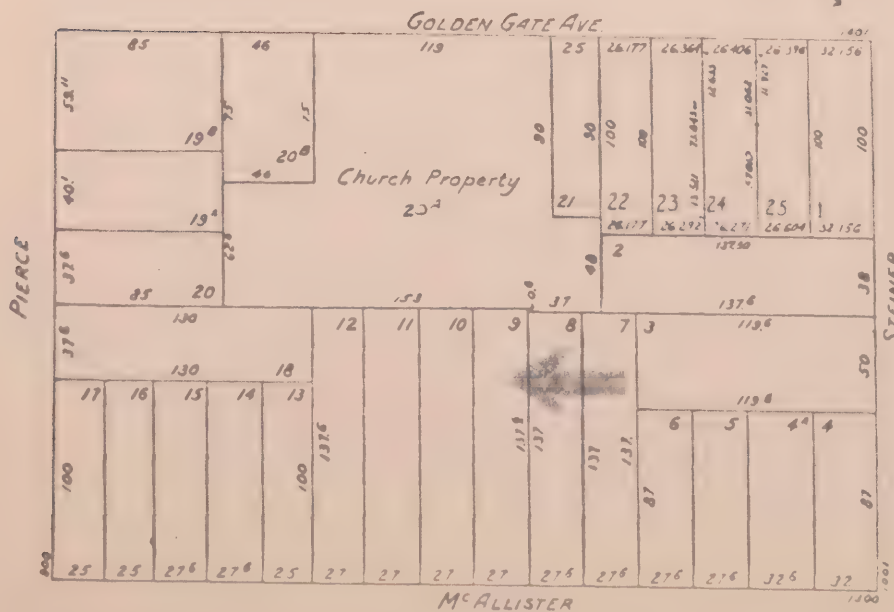 GOLDEN GATE AVE.
1401
85 46 119 25 26.177 26.364 26.406 26.396 32.156
59"
75 15 90 90 100 100 100 100
19ᴮ 20ᴮ
46
Church Property
20ᴬ
40'
19ᴬ
21 22 23 24 25 1
26.177 26.292 26.604 32.156
2 137.50
62⁶ 48 38
32⁶
PIERCE
STEINER
85 20 153 37 137⁶
130 12 11 10 9 8 7 3 119.⁶
37⁶ 50
130 18
17 16 15 14 13 119⁶
6 5 4ᴬ 4
100 100 137.⁶ 137⁶ 137 137 137. 87 87
25 25 27⁶ 27⁶ 25 27 27 27 27 27⁶ 27⁶ 27⁶ 27⁶ 32⁶ 32
1300
McALLISTER